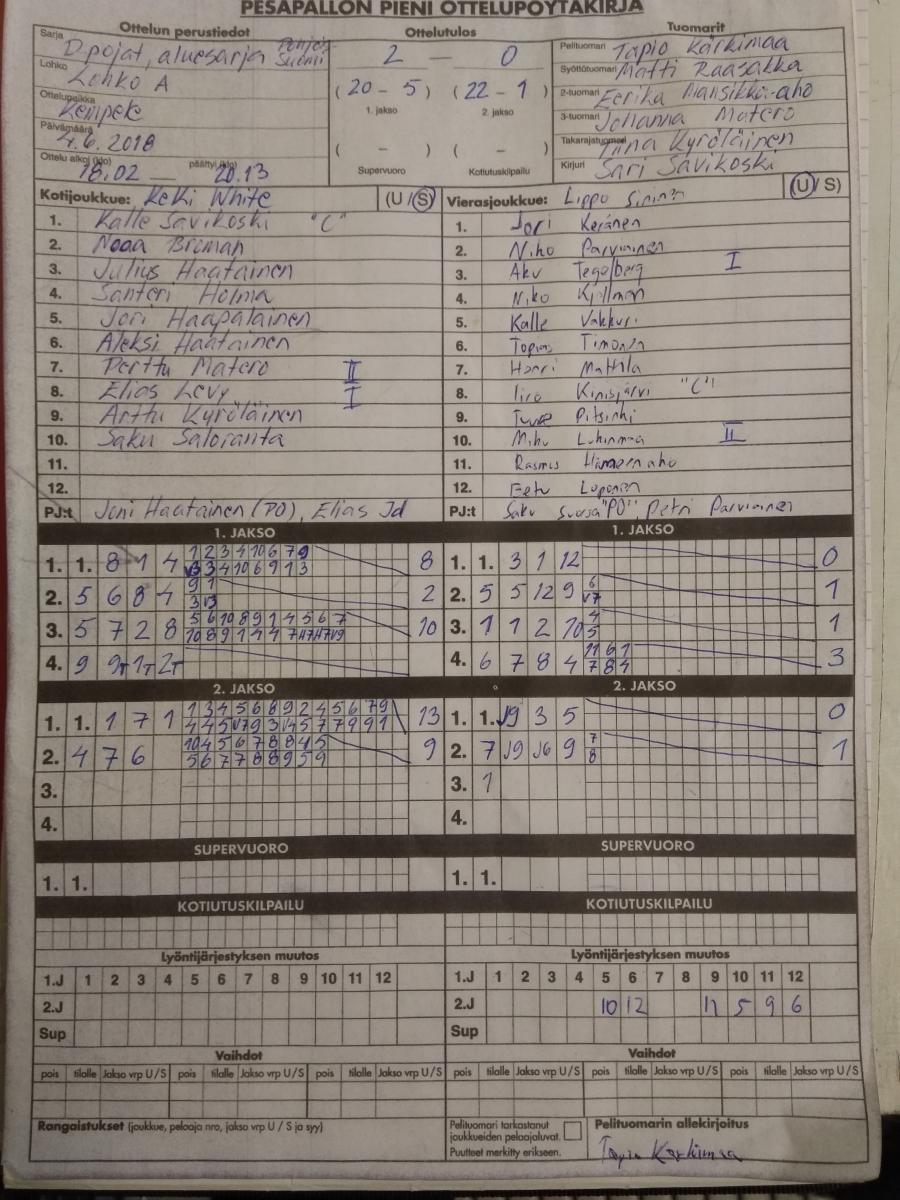 PESÄPALLON PIENI OTTELUPÖYTÄKIRJA
Ottelun perustiedot
Sarja D-pojat, aluesarja Pohjois-Suomi
Lohko Lohko A
Ottelupaikka Kempele
Päivämäärä 4.6.2018
Ottelu alkoi (klo) 18.02 — päättyi (klo) 20.13
Ottelutulos
2 — 0
(20 - 5) (22 - 1)
1. jakso 2. jakso
( - ) ( - )
Supervuoro Kotiutuskilpailu
Tuomarit
Pelituomari Tapio Kärkimaa
Syöttötuomari Matti Raasakka
2-tuomari Eerika Mansikka-aho
3-tuomari Johanna Matero
Takarajatuomari Tiina Kyröläinen
Kirjuri Sari Savikoski
Kotijoukkue: KeKi White (U / S)
1. Kalle Savikoski "C"
2. Noaa Broman
3. Julius Haatainen
4. Santeri Holma
5. Joni Haapalainen
6. Aleksi Haatainen
7. Perttu Matero II
8. Elias Levy I
9. Arttu Kyröläinen
10. Saku Saloranta
11.
12.
PJ:t Joni Haatainen (PO), Elias Jd
Vierasjoukkue: Lippo Sininen (U / S)
1. Jori Keränen
2. Niho Parviainen
3. Aku Tegelberg I
4. Niko Kjellman
5. Kalle Vakkuri
6. Topias Timonen
7. Henri Mattila
8. Iiro Kinisjärvi "C"
9. Tuure Pitsinki
10. Mihu Luhinmaa II
11. Rasmus Hämeenaho
12. Eetu Loponen
PJ:t Saku "PO", Petri Parviainen
1. JAKSO
1. 1. 8 1 4 1 2 3 4 10 6 7 9 8
3 4 10 6 9 1 3
2. 5 6 8 4 9 1 2
3. 5 7 2 8 5 6 10 8 9 1 4 5 6 7 10
10 8 9 1 4 4 7
4. 9 9T 1T 2T
1. JAKSO
1. 1. 3 1 12 0
2. 5 5 12 9 6 1
V7
3. 1 1 2 10 4 1
5
4. 6 7 8 4 11 6 1 3
7 8 4
2. JAKSO
1. 1. 1 7 1 1 3 4 5 6 8 9 2 4 5 6 7 9 13
4 4 5 V7 9 3 V4 5 7 7 9 9 1
2. 4 7 6 10 4 5 6 7 8 8 4 5 9
5 6 7 7 8 8 9 5 9
3.
4.
2. JAKSO
1. 1. J9 3 5 0
2. 7 J9 J6 9 7 1
8
3. 1
4.
SUPERVUORO
1. 1.
SUPERVUORO
1. 1.
KOTIUTUSKILPAILU
KOTIUTUSKILPAILU
Lyöntijärjestyksen muutos
1.J 1 2 3 4 5 6 7 8 9 10 11 12
2.J
Sup
Lyöntijärjestyksen muutos
1.J 1 2 3 4 5 6 7 8 9 10 11 12
2.J 10 12 11 5 9 6
Sup
Vaihdot
pois tilalle Jakso vrp U/S pois tilalle Jakso vrp U/S pois tilalle Jakso vrp U/S
Vaihdot
pois tilalle Jakso vrp U/S pois tilalle Jakso vrp U/S pois tilalle Jakso vrp U/S
Rangaistukset (joukkue, pelaaja nro, jakso vrp U / S ja syy)
Pelituomari tarkastanut
joukkueiden pelaajaluvat.
Puutteet merkitty erikseen.
Pelituomarin allekirjoitus
Tapio Kärkimaa